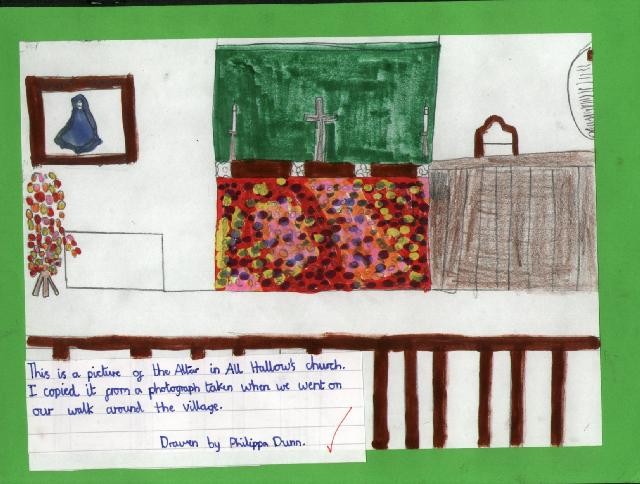 This is a picture of the Altar in All Hallow's church.
I copied it from a photograph taken when we went on
our walk around the village.
Drawn by Philippa Dunn.